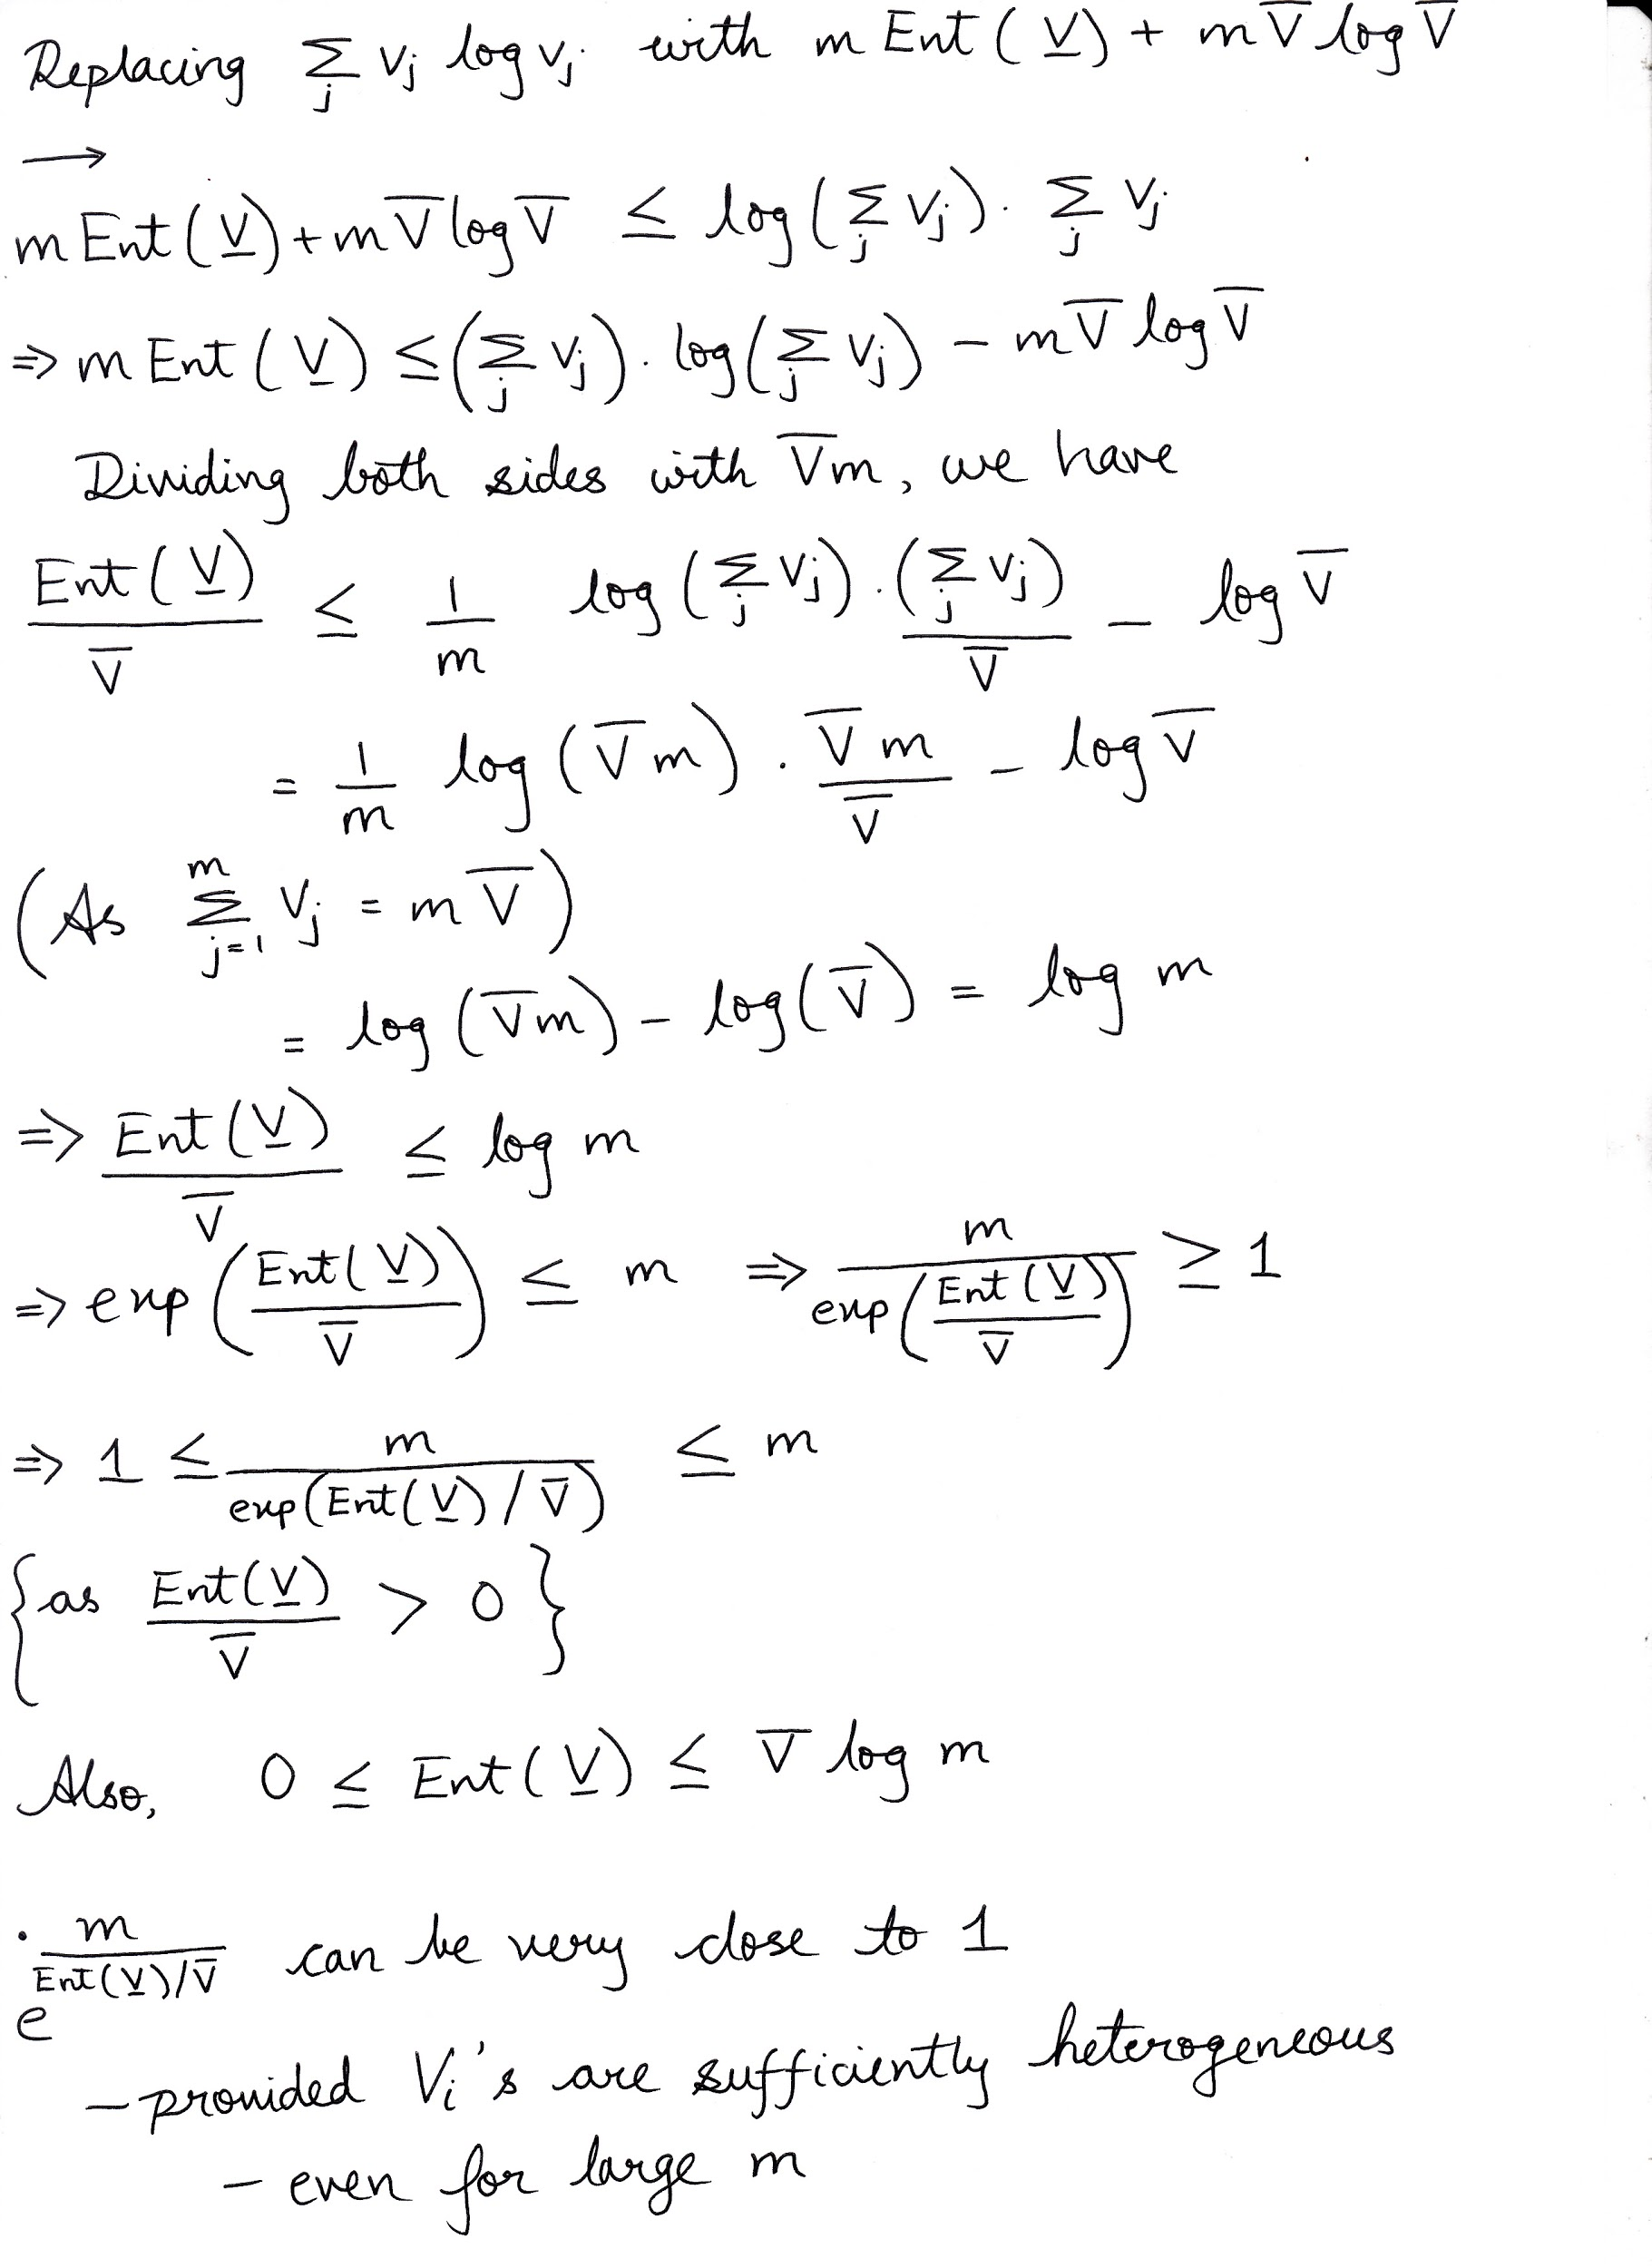 Replacing Σ_j v_j log v_j with m Ent(V̲) + m V̅ log V̅
→
m Ent(V̲) + m V̅ log V̅ ≤ log(Σ_j v_j) · Σ_j v_j
⇒ m Ent(V̲) ≤ (Σ_j v_j) · log(Σ_j v_j) − m V̅ log V̅
Dividing both sides with V̅m, we have
Ent(V̲)/V̅ ≤ 1/m log(Σ_j v_j) · (Σ_j v_j)/V̅ − log V̅
= 1/m log(V̅m) · V̅m/V̅ − log V̅
(As Σ_{j=1}^m v_j = m V̅)
= log(V̅m) − log(V̅) = log m
⇒ Ent(V̲)/V̅ ≤ log m
⇒ exp(Ent(V̲)/V̅) ≤ m ⇒ m/exp(Ent(V̲)/V̅) ≥ 1
⇒ 1 ≤ m/exp(Ent(V̲)/V̅) ≤ m
{as Ent(V̲)/V̅ > 0}
Also, 0 ≤ Ent(V̲) ≤ V̅ log m
· m/e^{Ent(V̲)/V̅} can be very close to 1
– provided V_i's are sufficiently heterogeneous
– even for large m